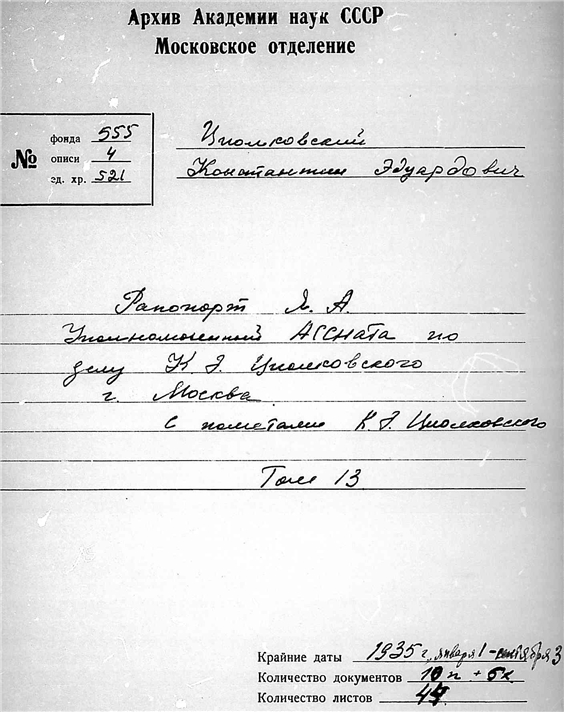 Архив Академии наук СССР
Московское отделение
№
фонда 555
описи 4
ед. хр. 521
Циолковский
Константин Эдуардович
Рапопорт Я. А.
Уполномоченный АССНАТа по
делу К Э. Циолковского
г. Москва
С пометами К. Э. Циолковского
Том 13
Крайние даты 1935 г., января 1 - сентября 3
Количество документов 10 п + 5 к
Количество листов